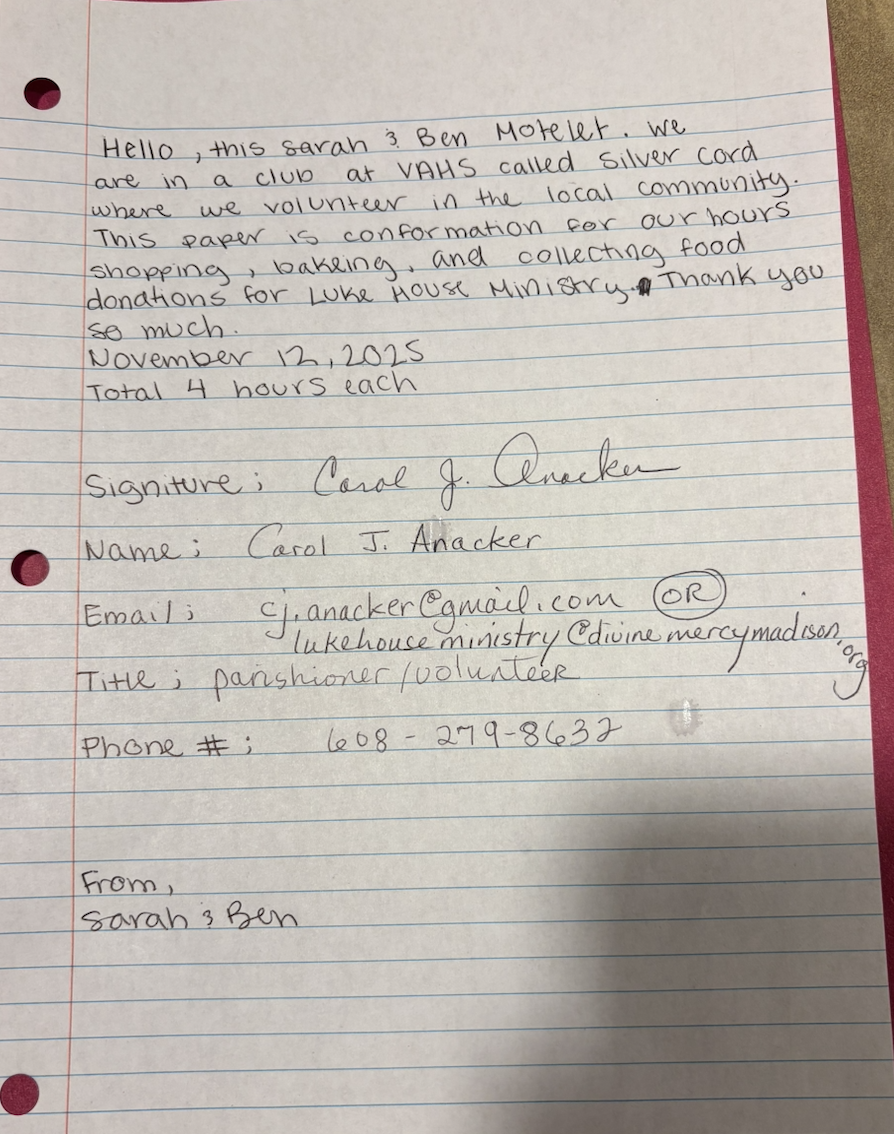 Hello, this sarah & Ben Motelet. We
are in a club at VAHS called Silver Cord
where we volunteer in the local community.
This paper is conformation for our hours
shopping, bakeing, and collecting food
donations for Luke House Ministry. Thank you
so much.
November 12, 2025
Total 4 hours each
Signiture; Carol J. Anacker
Name; Carol J. Anacker
Email; cj.anacker@gmail.com OR
lukehouseministry@divinemercymadison.org
Title; parishioner/volunteer
Phone #; 608-279-8632
From,
Sarah & Ben